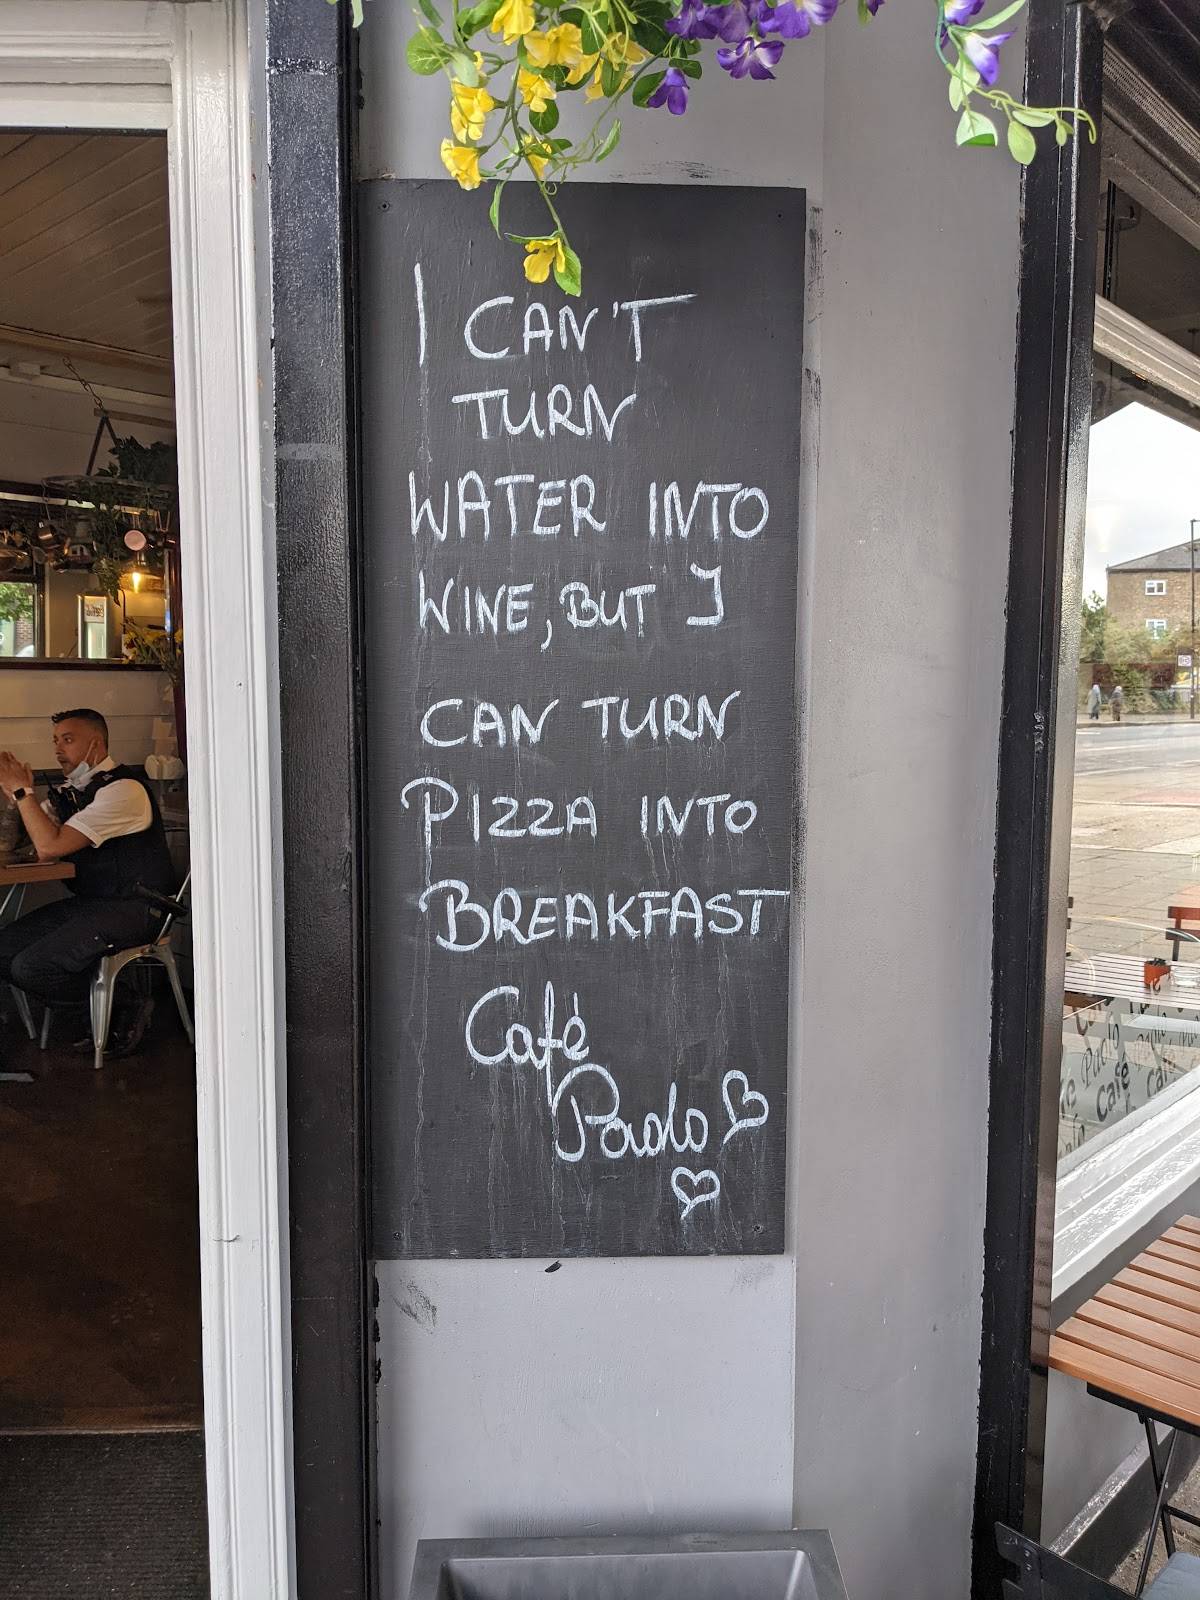 I CAN'T
TURN
WATER INTO
WINE, BUT I
CAN TURN
PIZZA INTO
BREAKFAST
Café
Paolo
Paolo
Café
Café